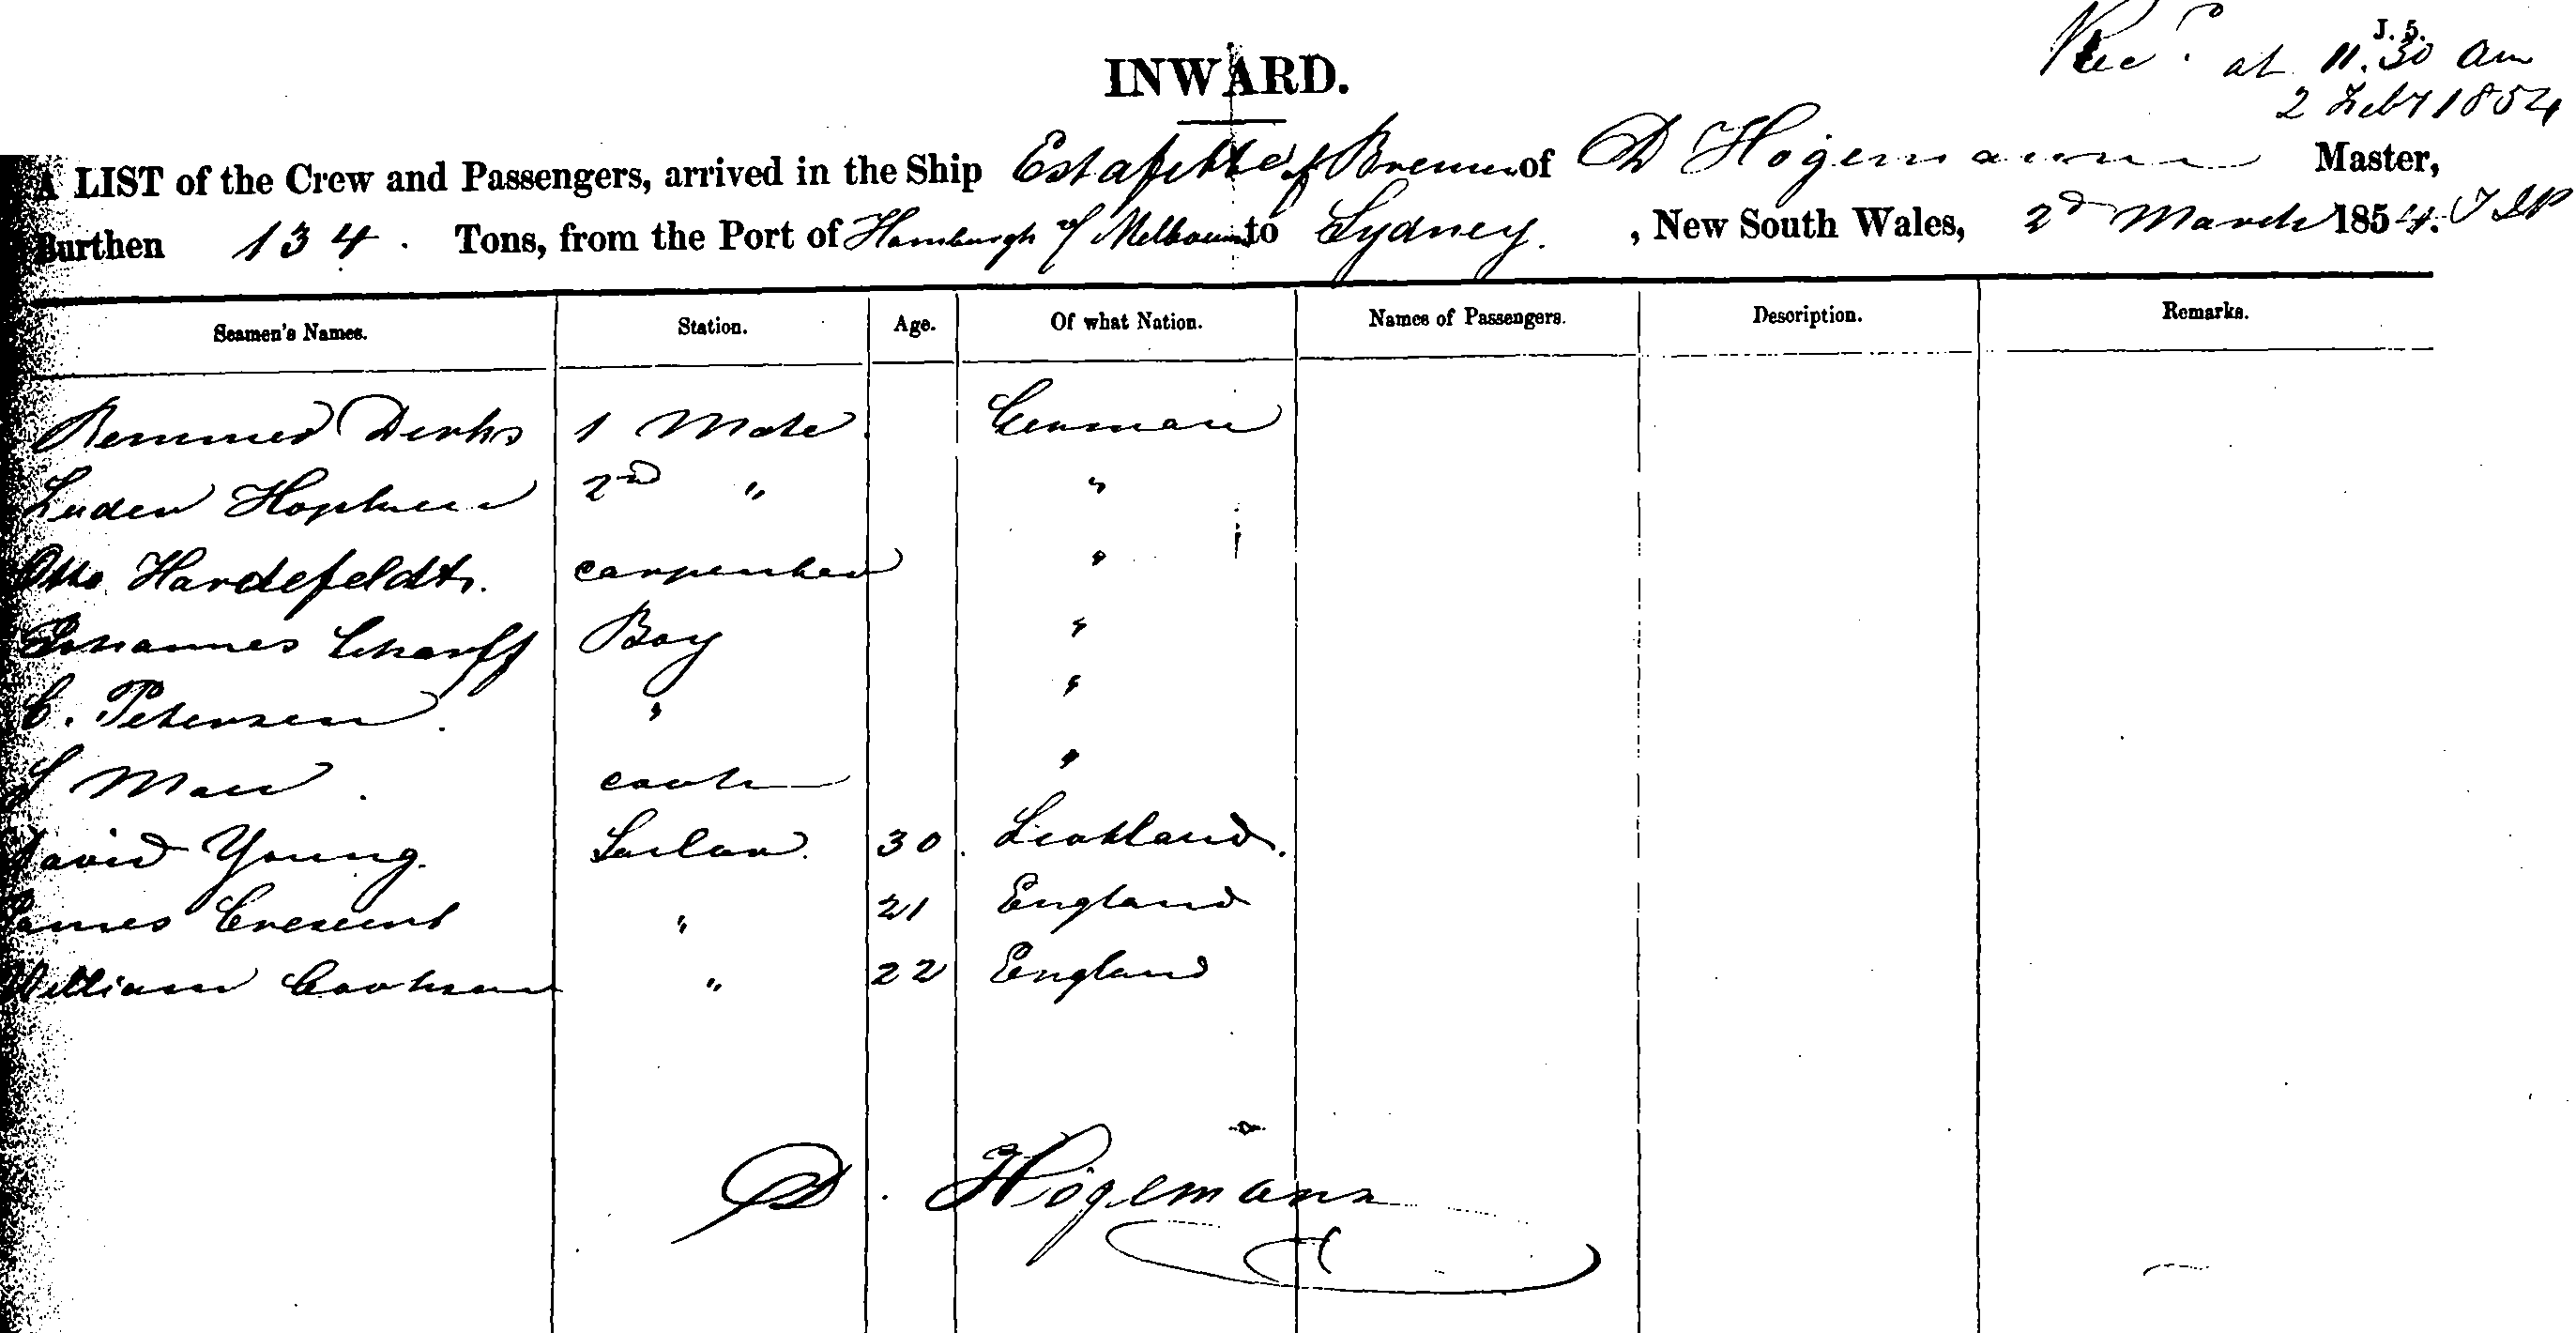 J. 5.
Recd at 11.30 am
2 Feby 1854
INWARD.
A LIST of the Crew and Passengers, arrived in the Ship Estafette of Bremen of D Hogemann Master,
Burthen 134. Tons, from the Port of Hamburgh Melbourne to Sydney. , New South Wales, 2d March 1854.
Seamen's Names. Station. Age. Of what Nation. Names of Passengers. Description. Remarks.
Remmer Dirks 1 Mate. German
Luder 2nd " "
Otto Hardefeldt. carpenter "
Johannes Scharff Boy "
C. Petersen. " "
Mau. cook "
David Young. Sailor. 30. Scotland.
James Crescent " 21 England
William Cookson " 22 England
D. Hogemann